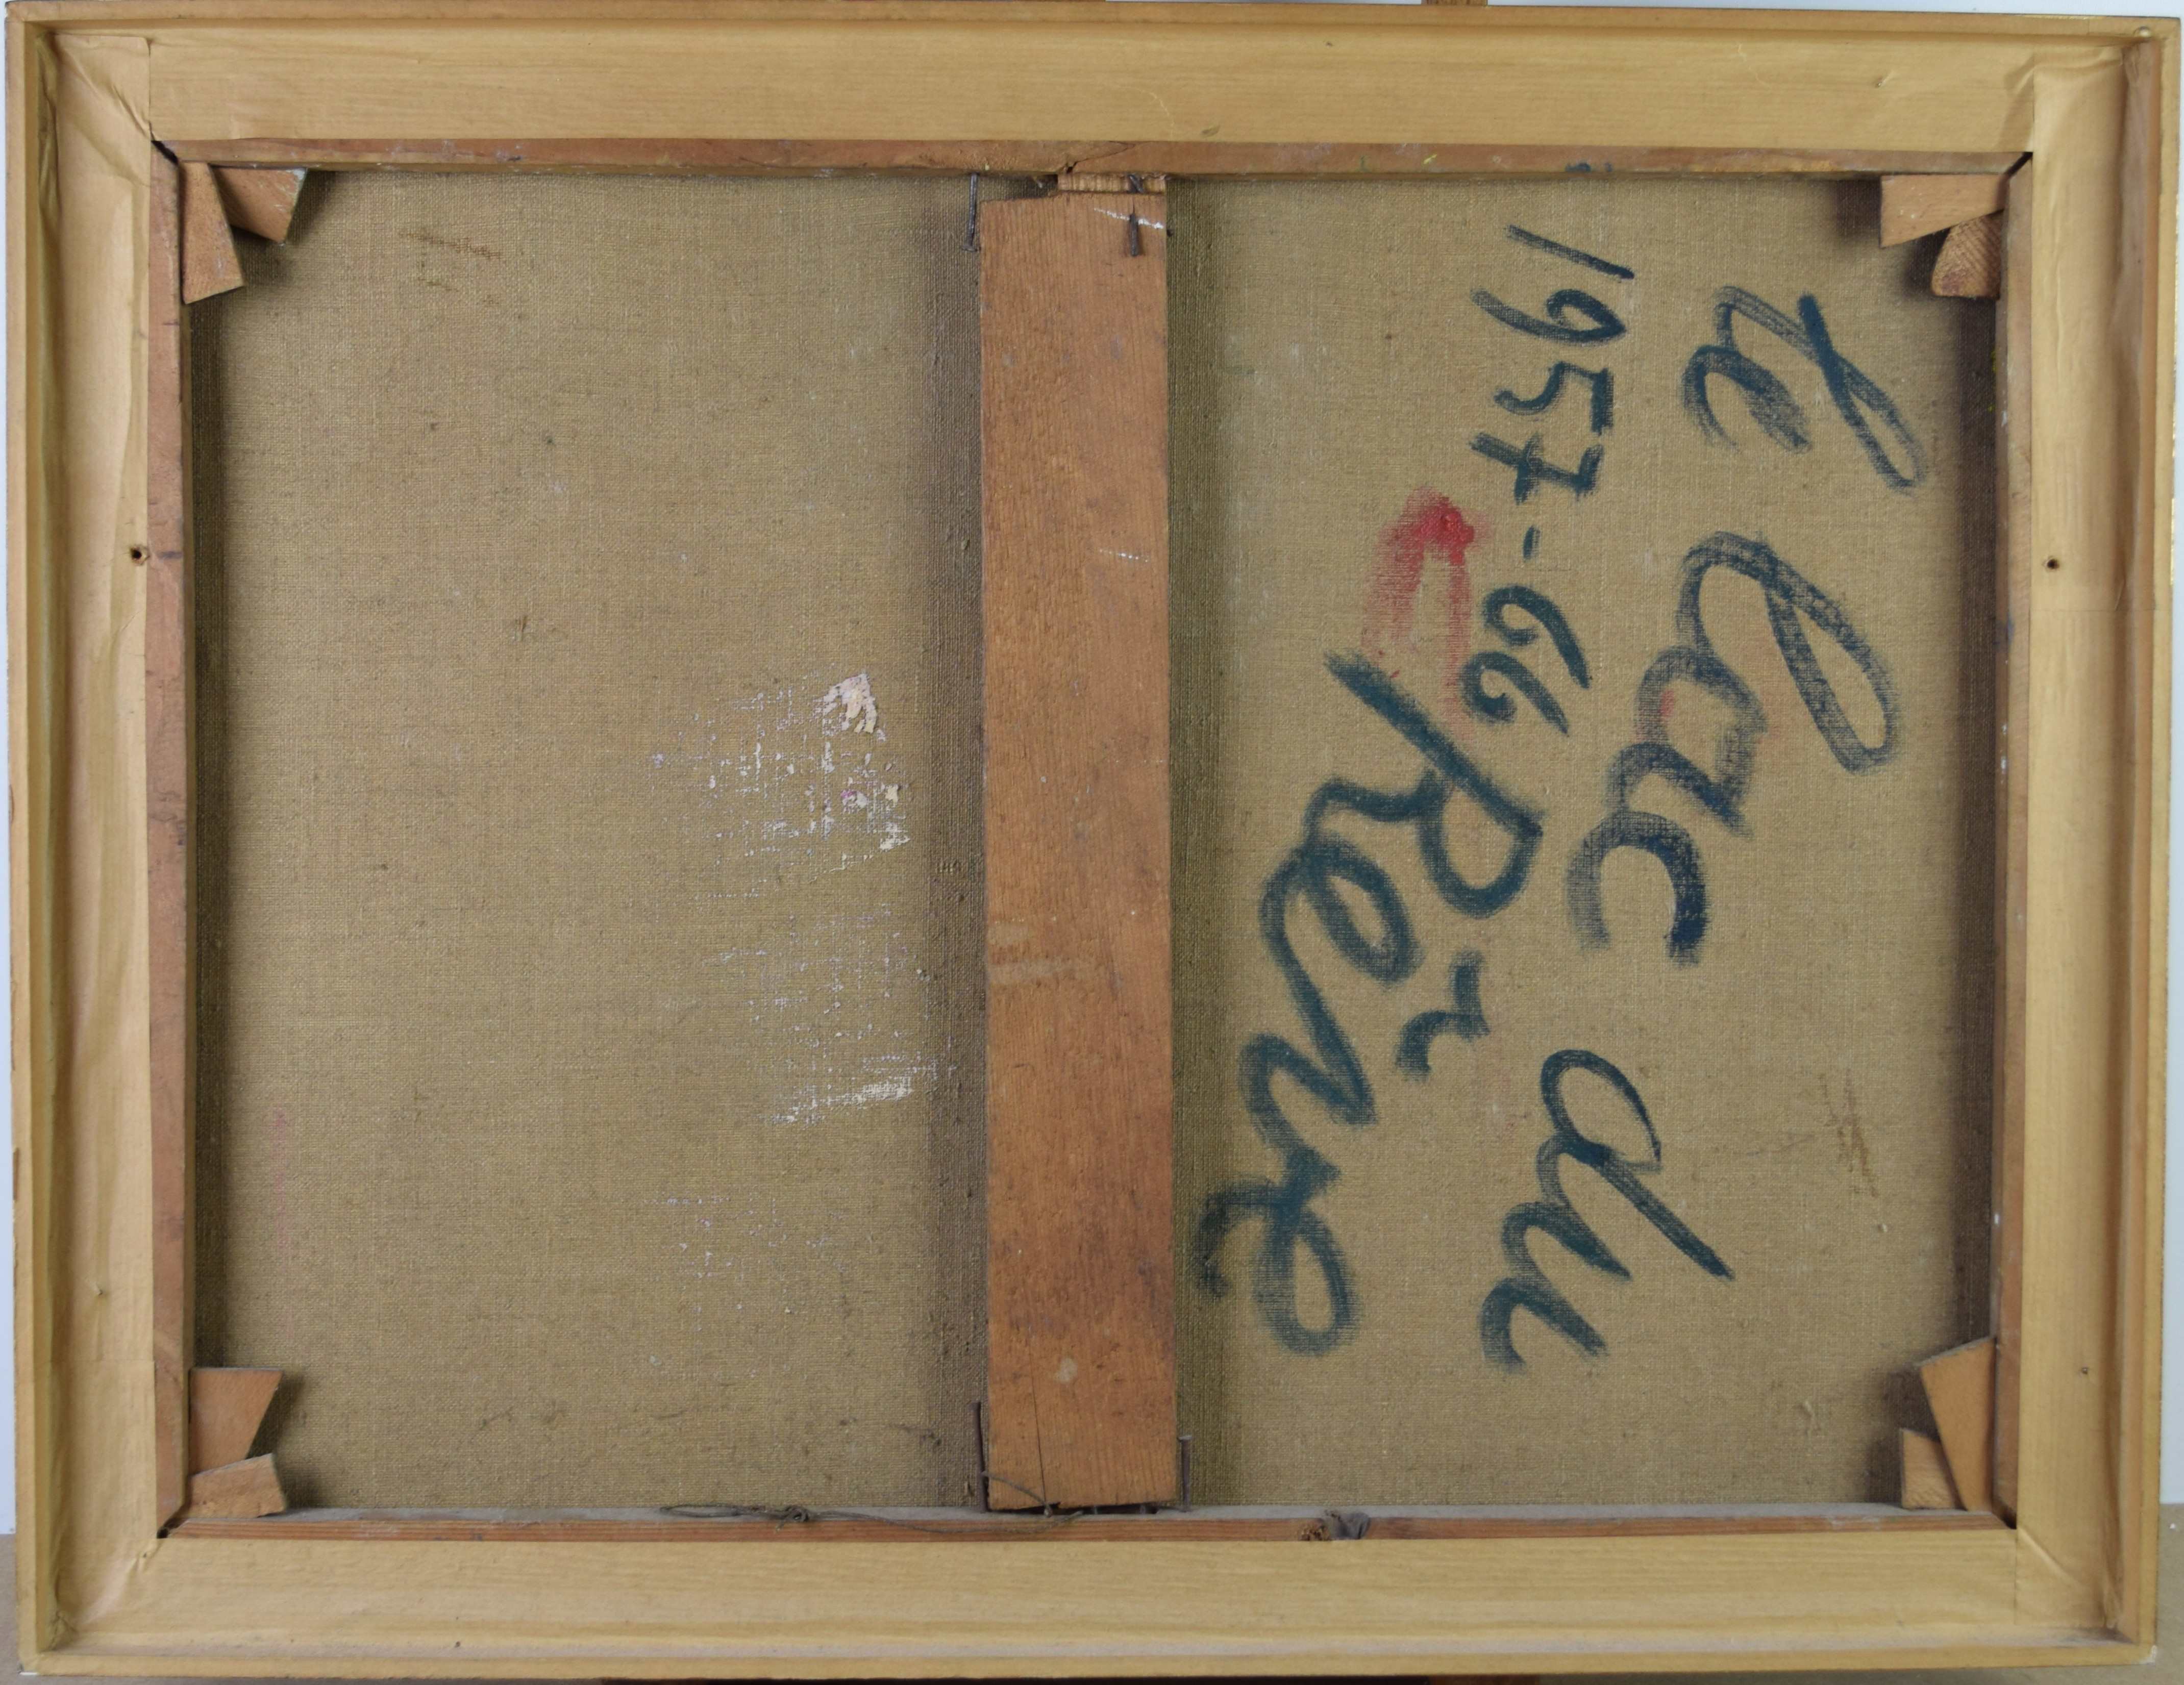 Le Lac du
Rêve
1957-66